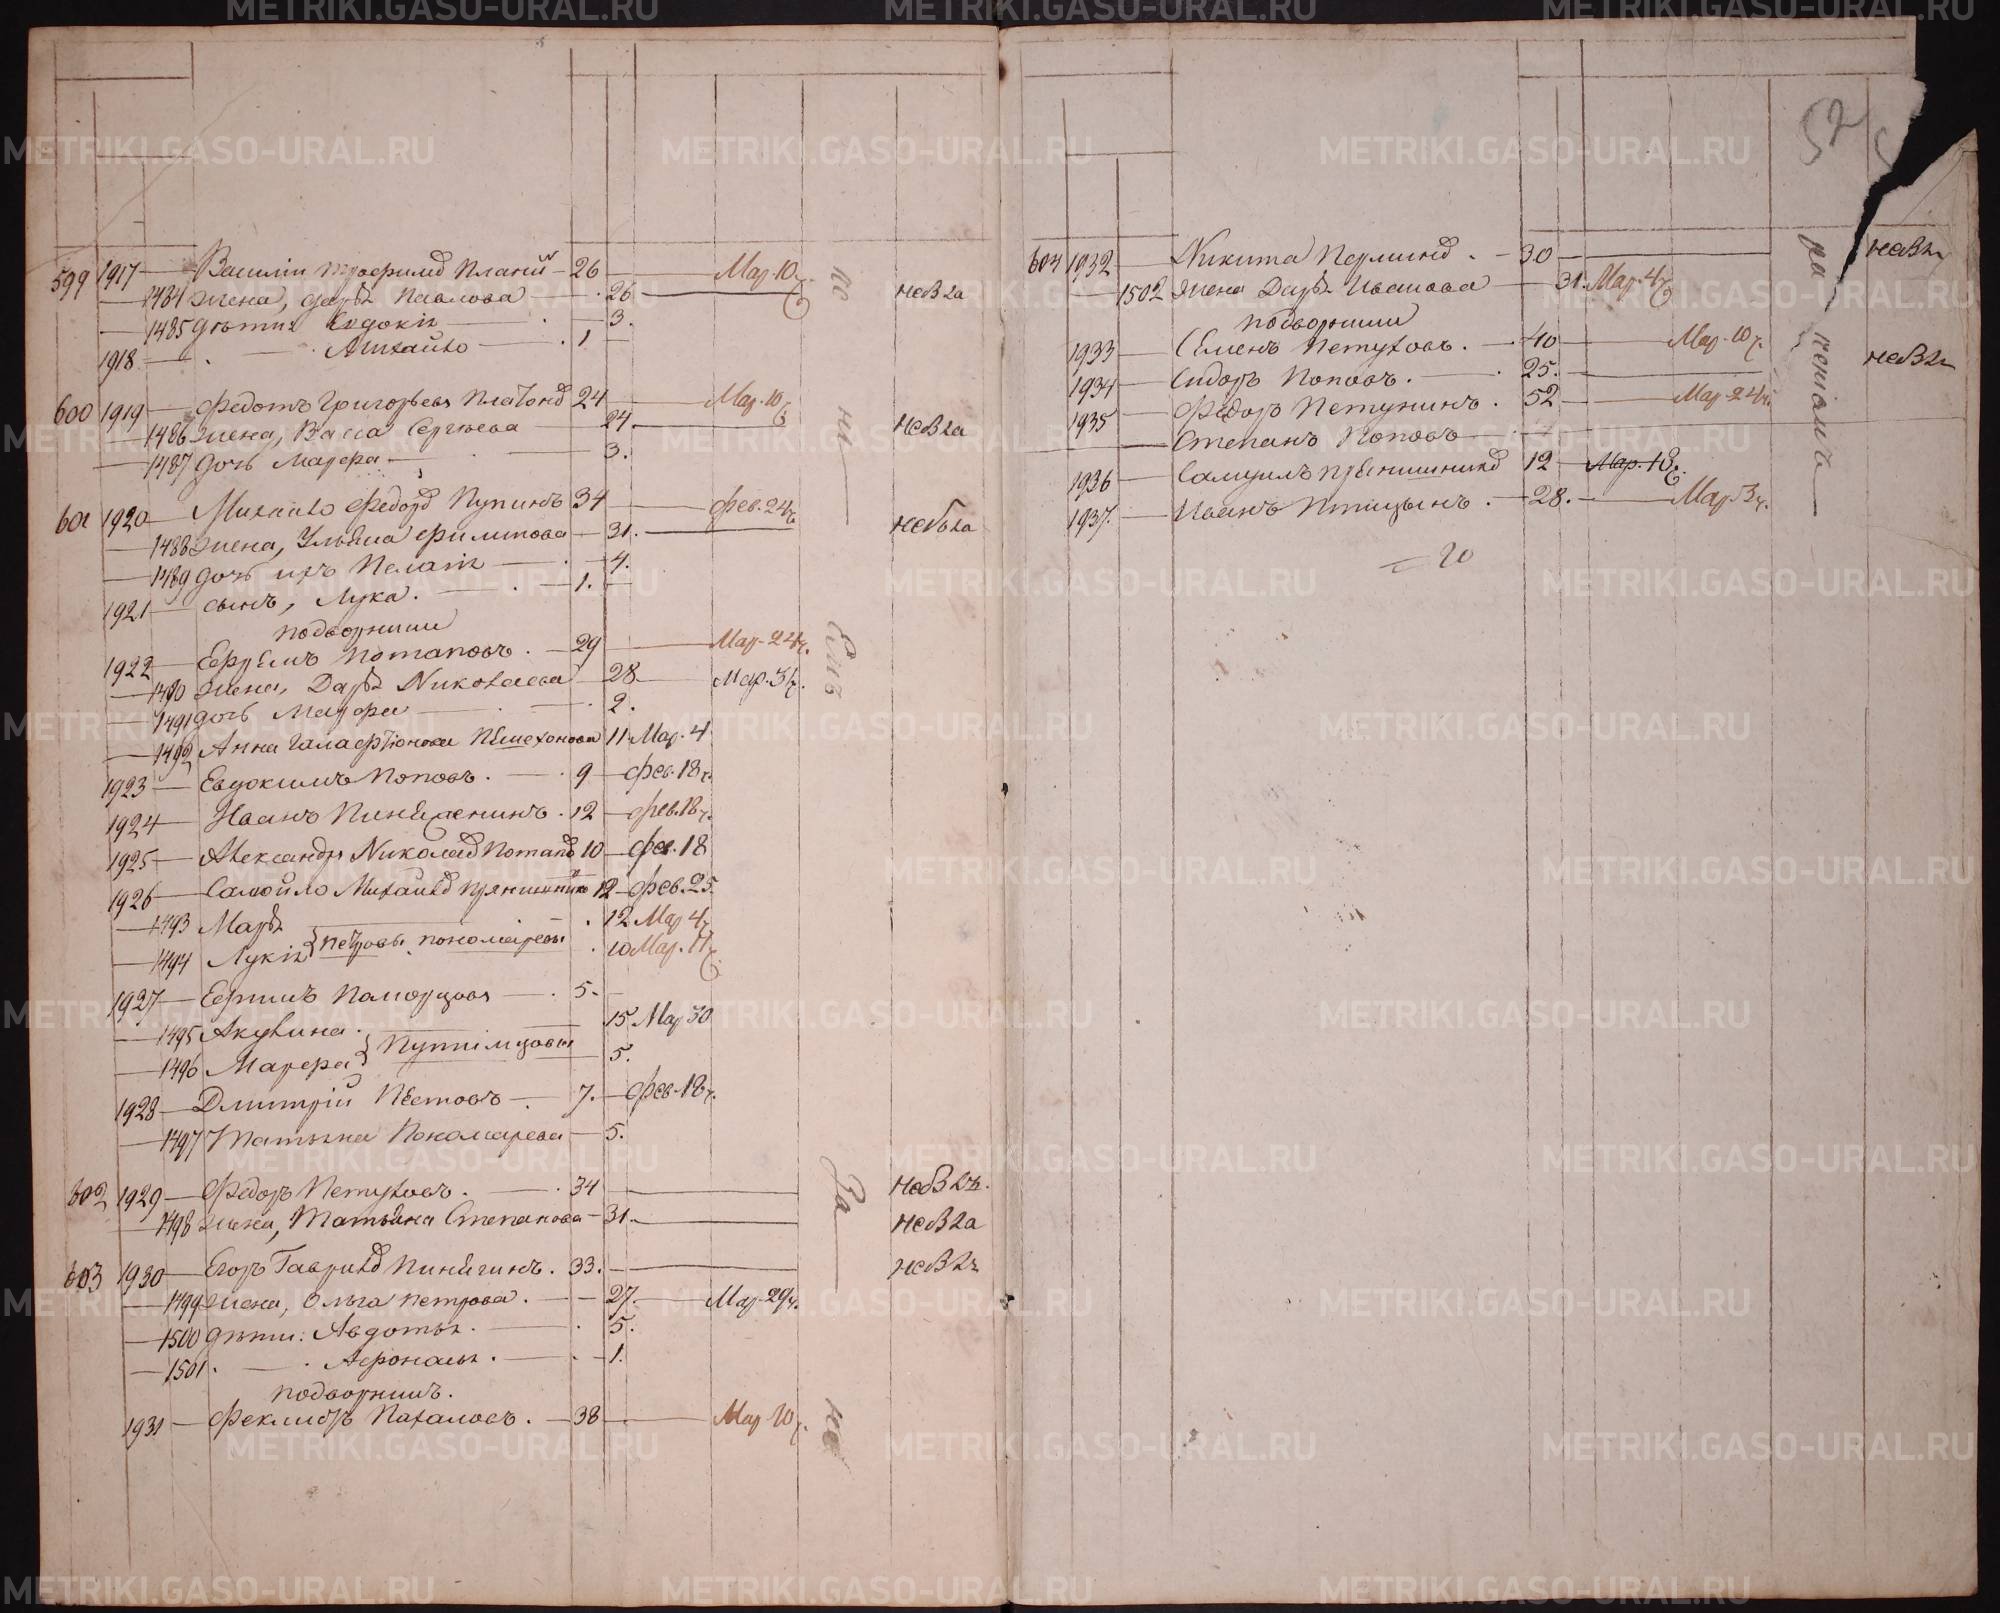 599 1917 Василіи Трофимов 26 Мар. 10
1484 жена, Дарья Павлова 26 небыла
1485 дѣти: Евдокія 3.
1918 Михайло 1
600 1919 Федотъ Григорьевъ Платонов 24 Мар. 10
1486 жена, Васса Сергѣева 24 небыла
1487 дочь Марфа 3.
601 1920 Михайло Федоров Пупинъ 34 Фев. 24
1488 жена, Ульяна Филипова 31. небыла
1489 дочь ихъ Пелагія 4.
1921 сынъ, Лука. 1.
подворники
1922 Ефремъ Потаповъ. 29 Мар. 24
1490 жена, Дарья Николаева 28 Мар. 3
1491 дочь Марфа 2.
1492 Анна Галафтіонова Пешехонова 11 Мар. 4
1923 Евдокимъ Поповъ. 9 фев. 18
1924 Иванъ 12 фев. 18
1925 Александръ Николаев Потапов 10 фев. 18
1926 Самойло Михайлов Пряничников 12 фев. 25.
1493 Марья 12 Мар 4
1494 Лукія Петровы Пономаревы 10 Мар. 11
1927 Ефимъ Поморцовъ 5.
1495 Акулина 15 Мар 30
1496 Марфа Путимцовы 5.
1928 Дмитрій Пестовъ 7. фев. 18
1497 Татьяна Пономарева 5.
602 1929 Федоръ Петуховъ. 34 небылъ.
1498 жена, Татьяна Степанова 31. небыла
603 1930 Егоръ Гаврилов Пинягинъ. 33. небылъ
1499 жена, Ольга Петрова. 27. Мар. 29
1500 дѣти: Авдотья. 5.
1501. 1.
подворникъ.
1931 Пахаловъ. 38 Мар. 10
604 1932 Никита Перминов. 30 небылъ
1502 жена Дарья Иванова 31. Мар. 4
подворники
1933 Семенъ Петуховъ. 40 Мар. 10
1934 Сидоръ Поповъ. 25. небылъ
1935 Федоръ Петунинъ. 52 Мар. 24
Степанъ Поповъ
1936 Самуилъ Пряничников 12 Мар. 18
1937. Иванъ Птицынъ. 28. Мар. 3
52
METRIKI.GASO-URAL.RU